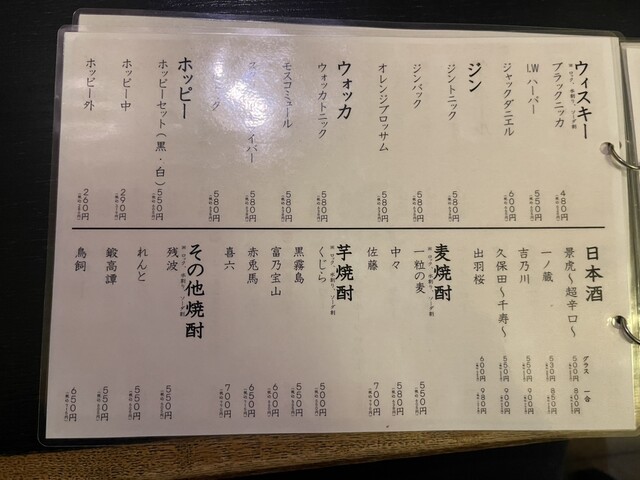 ウィスキー
ブラックニッカ 480円
I.W ハーパー 550円
ジャックダニエル 600円
ジン
ジントニック 580円
ジンバック 580円
オレンジブロッサム 580円
ウォッカ
ウォッカトニック 580円
モスコミュール 580円
580円
580円
ホッピー
ホッピーセット(黒・白) 550円
ホッピー中 290円
ホッピー外 260円
日本酒
グラス 一合
景虎～超辛口～ 500円 800円
一ノ蔵 530円 850円
吉乃川 550円 900円
久保田～千寿～ 550円 900円
出羽桜 600円 980円
麦焼酎
一粒の麦 550円
中々 580円
佐藤 700円
芋焼酎
くじら 500円
黒霧島 550円
富乃宝山 600円
赤兎馬 650円
喜六 700円
その他焼酎
残波 550円
れんと 550円
鍛高譚 550円
鳥飼 650円